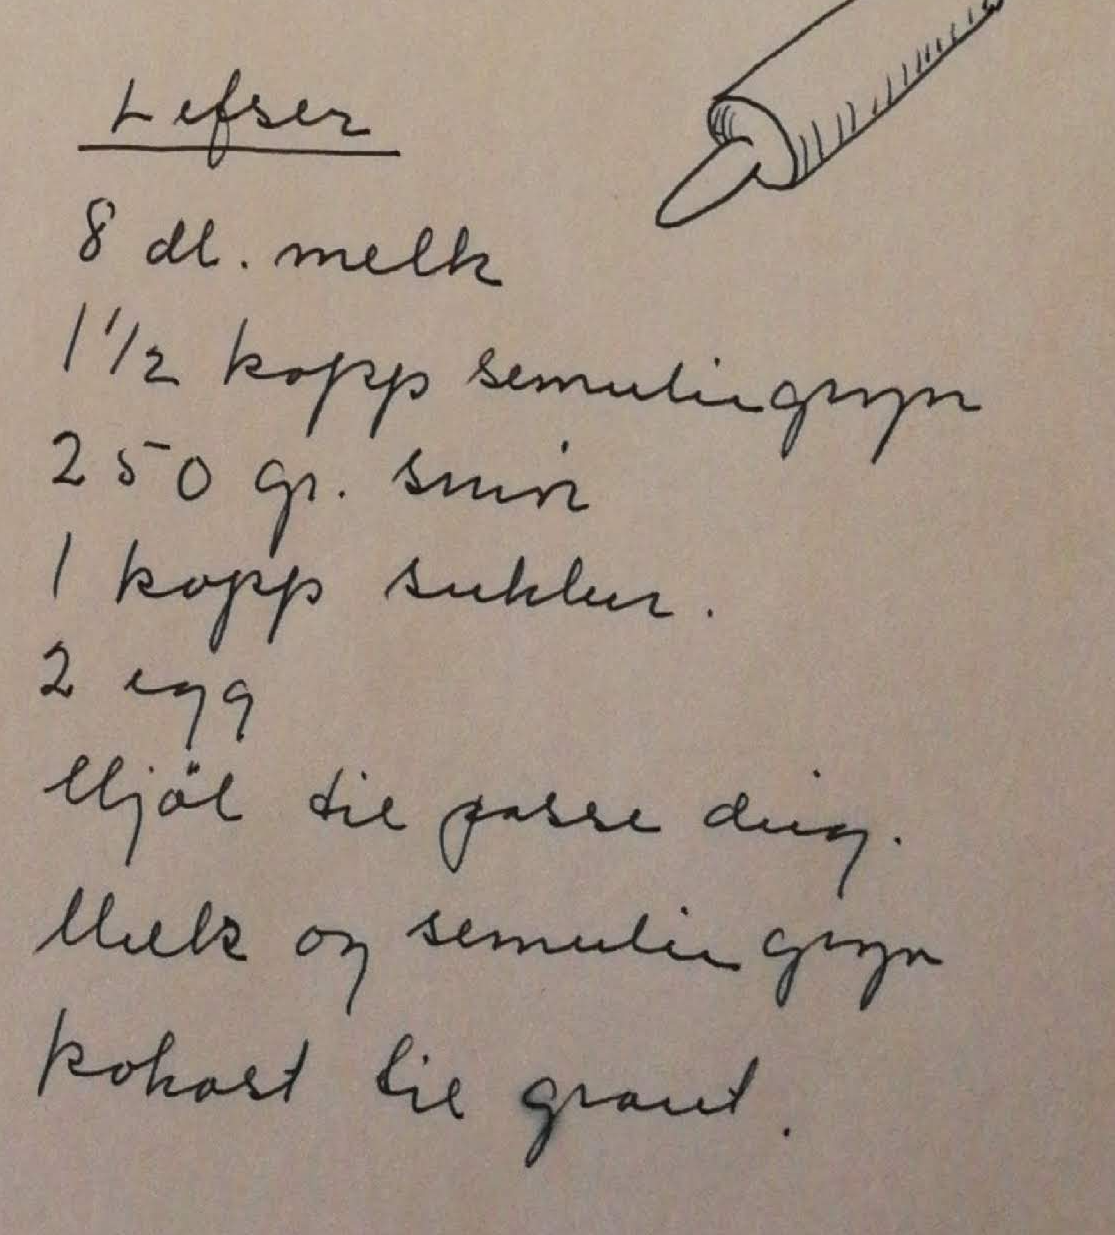 Lefser
8 dl. melk
1 1/2 kopp semuliegryn
250 gr. smör
1 kopp sukker.
2 egg
Mjöl til passe deig.
Melk og semulie gryn
kokast til graut.